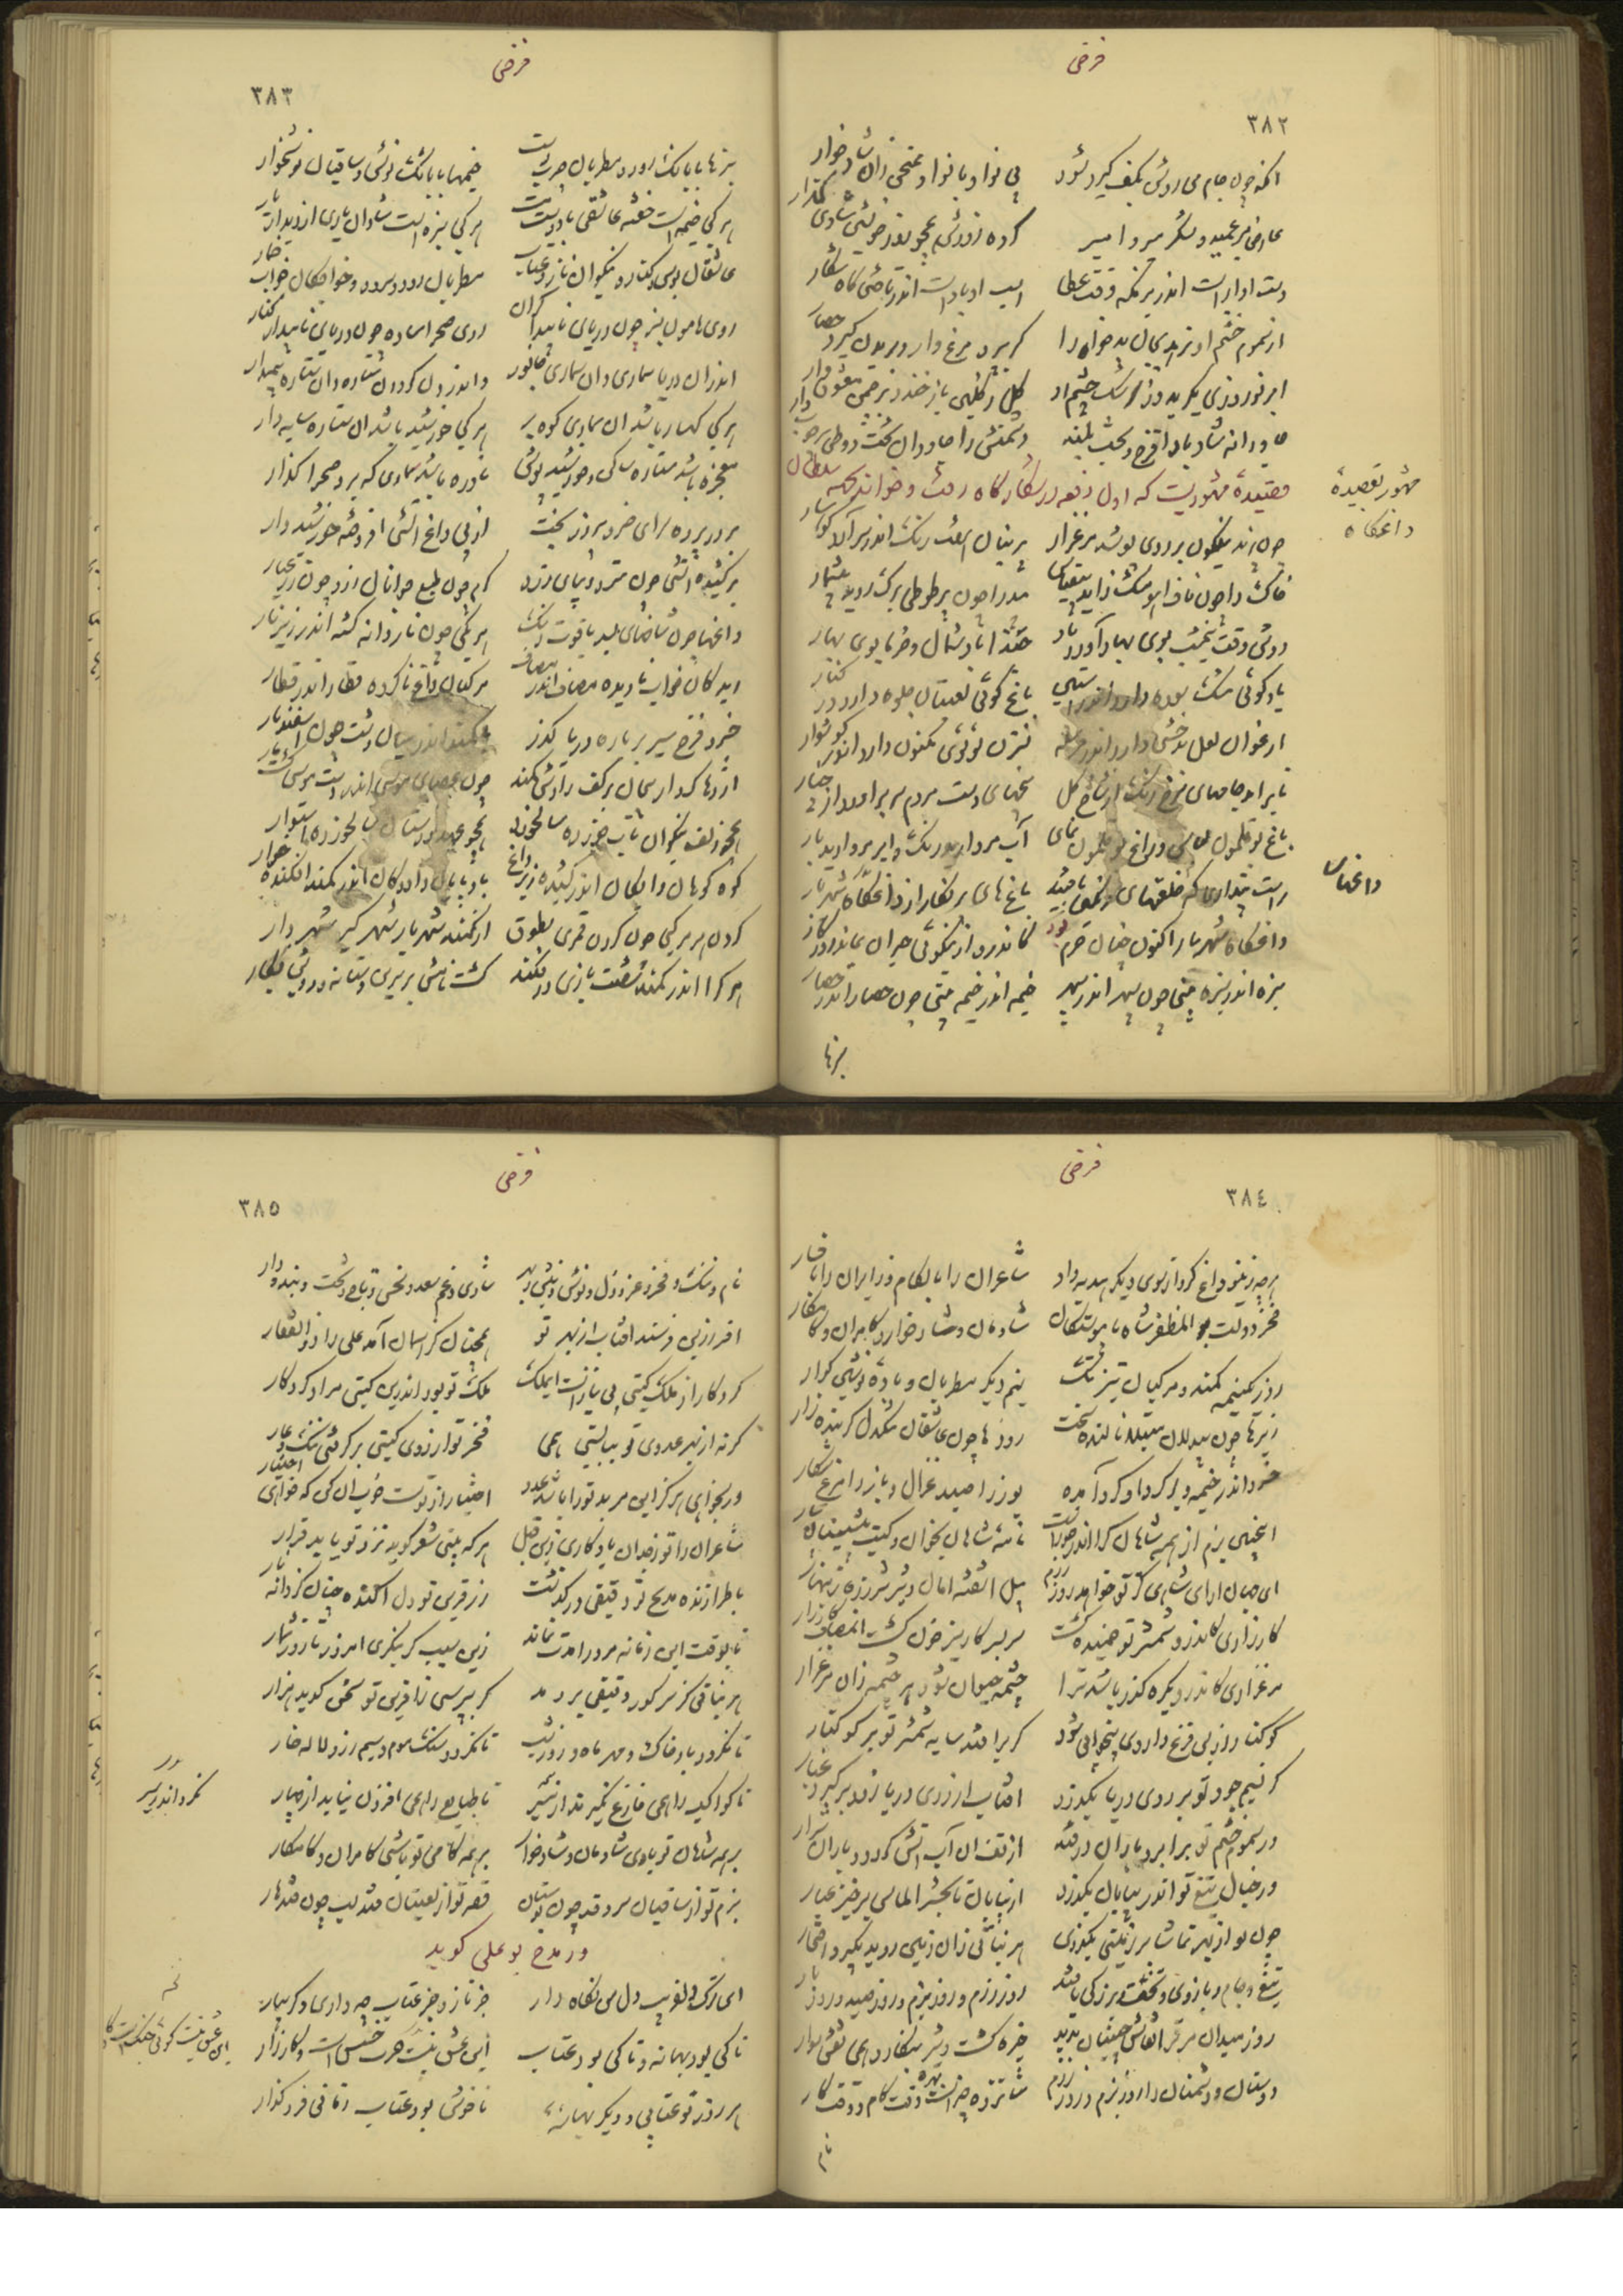 فرخی
٣٨٢
انکه چون جام می روشن بکف گیرد شود بی نوا و با نوا و ممتحن زان شادخوار
عارض میر عمید و لشکر میر و امیر کرده از وی همچو روز خوشتن شادی گذار
دست او ابر است اندر بزمگه وقت عطا اسب او باد است اندر تاختن گاه شکار
از سموم خشم او بد خواه را گر پرد مرغ وار و در بدن گیرد حصار
ابر نوروزی بگرید روز و شب از چشم او گل ز گلبن باز خندد
جاودانه شاد باد دشمنش را جاودان
قصیده مشهوریست که اول دفعه در شکارگاه رفت و خواند بحکم سلطان
مشهور بقصیدهٔ داغگاه
چون پرند نیلگون بر روی پوشد مرغزار پرنیان هفت رنک اندر سر آرد کوهسار
خاک را چون ناف آهو مشک زاید بیقیاس بید را چون پر طوطی برک روید بیشمار
دوش وقت نیمشب بوی بهار آورد باد حبذا باد شمال و خرما بوی بهار
باد گوئی مشک سوده دارد اندر آستین باغ گوئی لعبتان جلوه دارد در کنار
ارغوان لعل بدخشی دارد اندر مرسله نسترن لؤلؤی مکنون دارد اندر گوشوار
تا بر آمد جامهای سرخ رنک از شاخ گل پنجهای دست مردم سر برآورد از چنار
باغ بوقلمون لباس و راغ بوقلمون نمای آب مروارید رنک و ابر مروارید بار
راست پنداری که خلعتهای رنگین یافتند باغ های پر نگار از داغگاه شهریار
داغگاه شهریار اکنون چنان خرم بود کاندرو از نیکوئی حیران بماند روزگار
سبزه اندر سبزه بینی چون سپهر اندر سپهر خیمه اندر خیمه بینی چون حصار اندر حصار
داغهاس
بزها
فرخی
٣٨٣
بزها با بانک رود و مطربان چرب دست خیمها با بانک نوش و ساقیان نوشخوار
هر کی خیمه است خفته عاشقی با دوست مست هر کی سبزه است شادان یاری از دیدار یار
عاشقان بوس و کنار و نیکوان ناز و عتاب مطربان رود و سرود و خواجگان خواب خمار
روی هامون سبز چون دریای ناپیدا کران روی صحرا ساده چون دریای ناپیدا کنار
اندران دریا سماری وان سماری جانور و اندر گردون ستاره وان ستاره بیمدار
هر کی کهسار باشد ان سماری کوه بر هر کی خورشید باشد ان ستاره سایه دار
معجزه باشد ستاره ساکن و خورشید پوش نادره باشد سماری که برد صحرا گذار
بر در پرده سرای خسرو پیروز بخت از پی داغ آتشی افروخته خورشید وار
بر کشیده آتشی چون مطرد دیبای زرد گرم چون طبع جوانان زرد چون زر عیار
داغها چون شاخهای بسد یاقوت رنک هر یکی چون نار دانه گشته اندر زیر نار
ریدکان خواب نادیده مصاف اندر مصاف مرکبان داغ نا کرده قطار اندر قطار
خسرو فرخ سیر بر باره دریا گذر با کمند اندر میان دشت چون اسفندیار
اژدها کردار پیچان بر کف رادش کمند چون عصای موسی اندر دست موسی گشته مار
همچو زلف نیکوان تاب خورده سالخورد همچو عهد دوستان سالخورده استوار
کوه کوهان دادگان اندر کشیده زیر داغ بادپایان دادگان اندر کمند افکنده خوار
گردن هر مرکبی چون گردن قمری بطوق از کمند شهریار شهر گیر شهر دار
هر کرا اندر کمند شصت بازی در فکند گشت نامش بر سرین و شانه و رویش نگار
فرخی
٣٨٤
هر چه زین سو داغ کرد از سوی دیگر هدیه داد شاعران را با لگام و زائران را با فسار
فخر دولت بو المظفر شاه با پیوستگان شادمان و شادخوار و کامران و کامکار
روز یک نیمه کمند و مرکبان تیز تک نیم دیگر مطربان و بادهٔ نوشین گوار
زیرها چون بیدلان مبتلا نالنده سخت رودها چون عاشقان تنگدل گرینده زار
خسرو اندر خیمه و بر گرد او گرد آمده یوز را صید غزال و باز را مرغ شکار
اینچنین بزم از همه شاهان کرا اندر خورست نامه شاهان بخوان و کتب پیشینان بیار
ای جهان آرای شاهی کز تو خواهد روز رزم پیل آشفته امان و شیر شرزه زینهار
کارزاری کاندرو شمشیر تو جنبیده گشت سر بسر کاریز خون گشت آن مصاف کارزار
مرغزاری کاندرو یکره گذر باشد ترا چشمه حیوان شود هر چشمه زان مرغزار
کوکنار از بس فزع داروی بیخوابی شود گر برافتد سایه شمشیر تو بر کوکنار
گر نسیم جود تو بر روی دریا بگذرد آفتاب از روی دریا زود برگیرد غبار
ور سموم خشم تو بر ابر و باران درفتد از تف ان آب آتش گردد و باران شرار
ور خیال تیغ تو اندر بیابان بگذرد از بیابان تا بحشر الماس برخیزد غبار
چون تو از بهر تماشا بر زمینی بگذری هر نباتی زان زمین روید بگیرد افتخار
تیغ و جام و باز و تخت از تو بزرگی یافتند روز رزم و روز بزم و روز صید و روز بار
روز میدان گر ترا نقاش چین بیند خیره گشت و شیر بنگارد همی نقش سوار
دوستان و دشمنان را از تو روز بزم و رزم شانزده چیز است بهره وقت کام و وقت کار
نام
فرخی
٣٨٥
نام و ننک و فخر و عز و ذل و نوش و زهر شادی و غم سعد و نحس و تاج و تخت و بند و دار
افسر زرین فرستد آفتاب از بهر تو همچنان کز آسمان آمد علی را ذوالفقار
کردگار از ملک گیتی بی نیاز است ایملک ملک تو بود اندرین گیتی مراد کردگار
گر نه از بهر عدوی تو ببایستی همی فخر تو از روی گیتی برگرفتی ننگ و عار
ور بخواهی هرگز این مر بد تو را باشد عدد اختیار از تست خوب آن کن که خواهی اختیار
شاعران را تو زجدان یادگاری زین قبل هر که بیتی شعر گوید نزد تو یابد قرار
با طرازنده مدیح تو دقیقی در گذشت ز آفرین تو دل آکنده چنان کز دانه نار
تا بوقت این زمانه مر ورا مدت نماند زین سبب گر بنگری امروز تا روز شمار
هر نباتی کز سر گور دقیقی بر دمد گر بپرسی ز آفرین تو سخن گوید هزار
تا نگردد باد خاک و مهر ماه و روز شب تا نگردد سنگ موم و سیم زر و لاله خار
تا کواکب را همی فارغ نگیرند از مسیر تا طبایع را همی افزون نیابند از چهار
بر همه شاهان تو بادی شادمان و شادخوار بر همه کامی تو باشی کامران و کامکار
بزم تو از ساقیان سرو قد چون بوستان قصر تو از لعبتان قند لب چون قندهار
در مدح بو علی گوید
ای ترک دلفریب دل من نگاه دار جز ناز و جز عتاب چه داری دگر بیار
تا کی بود بهانه و تا کی بود عتاب این عشق نیست جنگست و کارزار
هر روز تو عتابی و دیگر بهانهٔ ناخوش بود عتاب زمانی فرو گذار